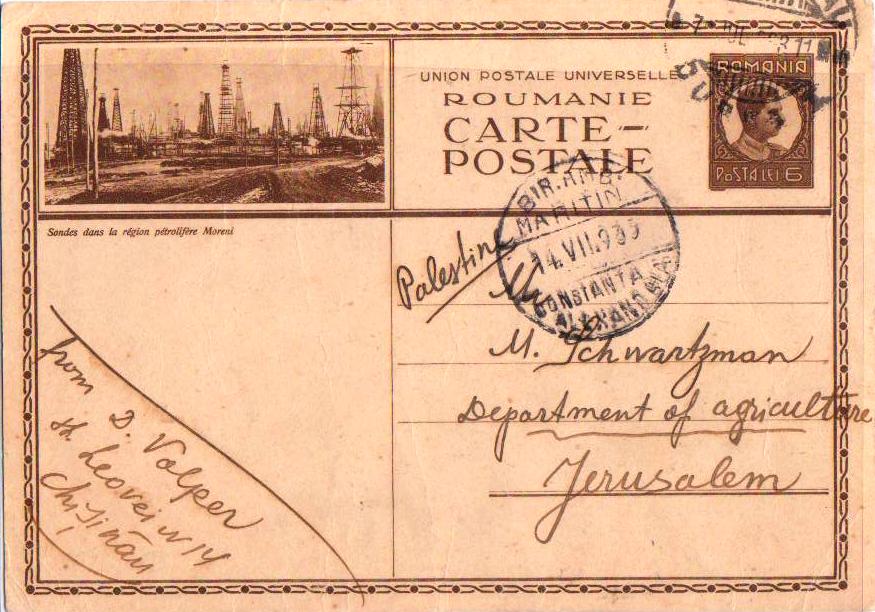 UNION POSTALE UNIVERSELLE
ROUMANIE
CARTE-
POSTALE
ROMANIA
POSTA LEI 6
Sondes dans la région pétrolifère Moreni
BIR. AMB.
MARITIM
14.VII.933
CONSTANTA
ALEXANDRIA
Palestine
M. Schwartzman
Department of agriculture
Jerusalem
from D. Volper
st. Leovei N 14
Chișinău